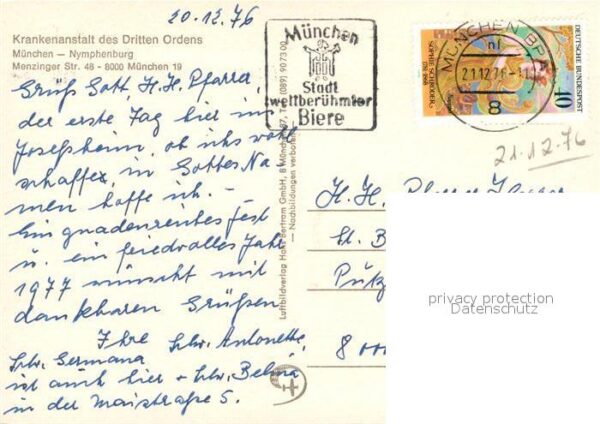 20.12.76
Krankenanstalt des Dritten Ordens
München — Nymphenburg
Menzinger Str. 48 - 8000 München 19
Grüß Gott H. H. Pfarrer,
der erste Tag hier im
Josefsheim, ob ich's wohl
schaffe, in Gottes Na-
men hoffe ich. -
Ein gnadenreiches Fest
u. ein friedvolles Jahr
1977 wünscht mit
dankbaren Grüßen
Ihre Schw. Antonette,
Schw. Germana
ist auch hier + Schw. Belina
in der Maistraße 5.
München
Stadt
weltberühmter
Biere
Luftbildverlag Hans Bertram GmbH, 8 München 87, (089) 90 73 00
— Nachbildungen verboten —
MÜNCHEN BPA
nl
21.12.76-11
8
SOPHIE SCHRÖDER
DEUTSCHE BUNDESPOST
40
21.12.76
H. H.
St. B
Pütz
8000
privacy protection
Datenschutz